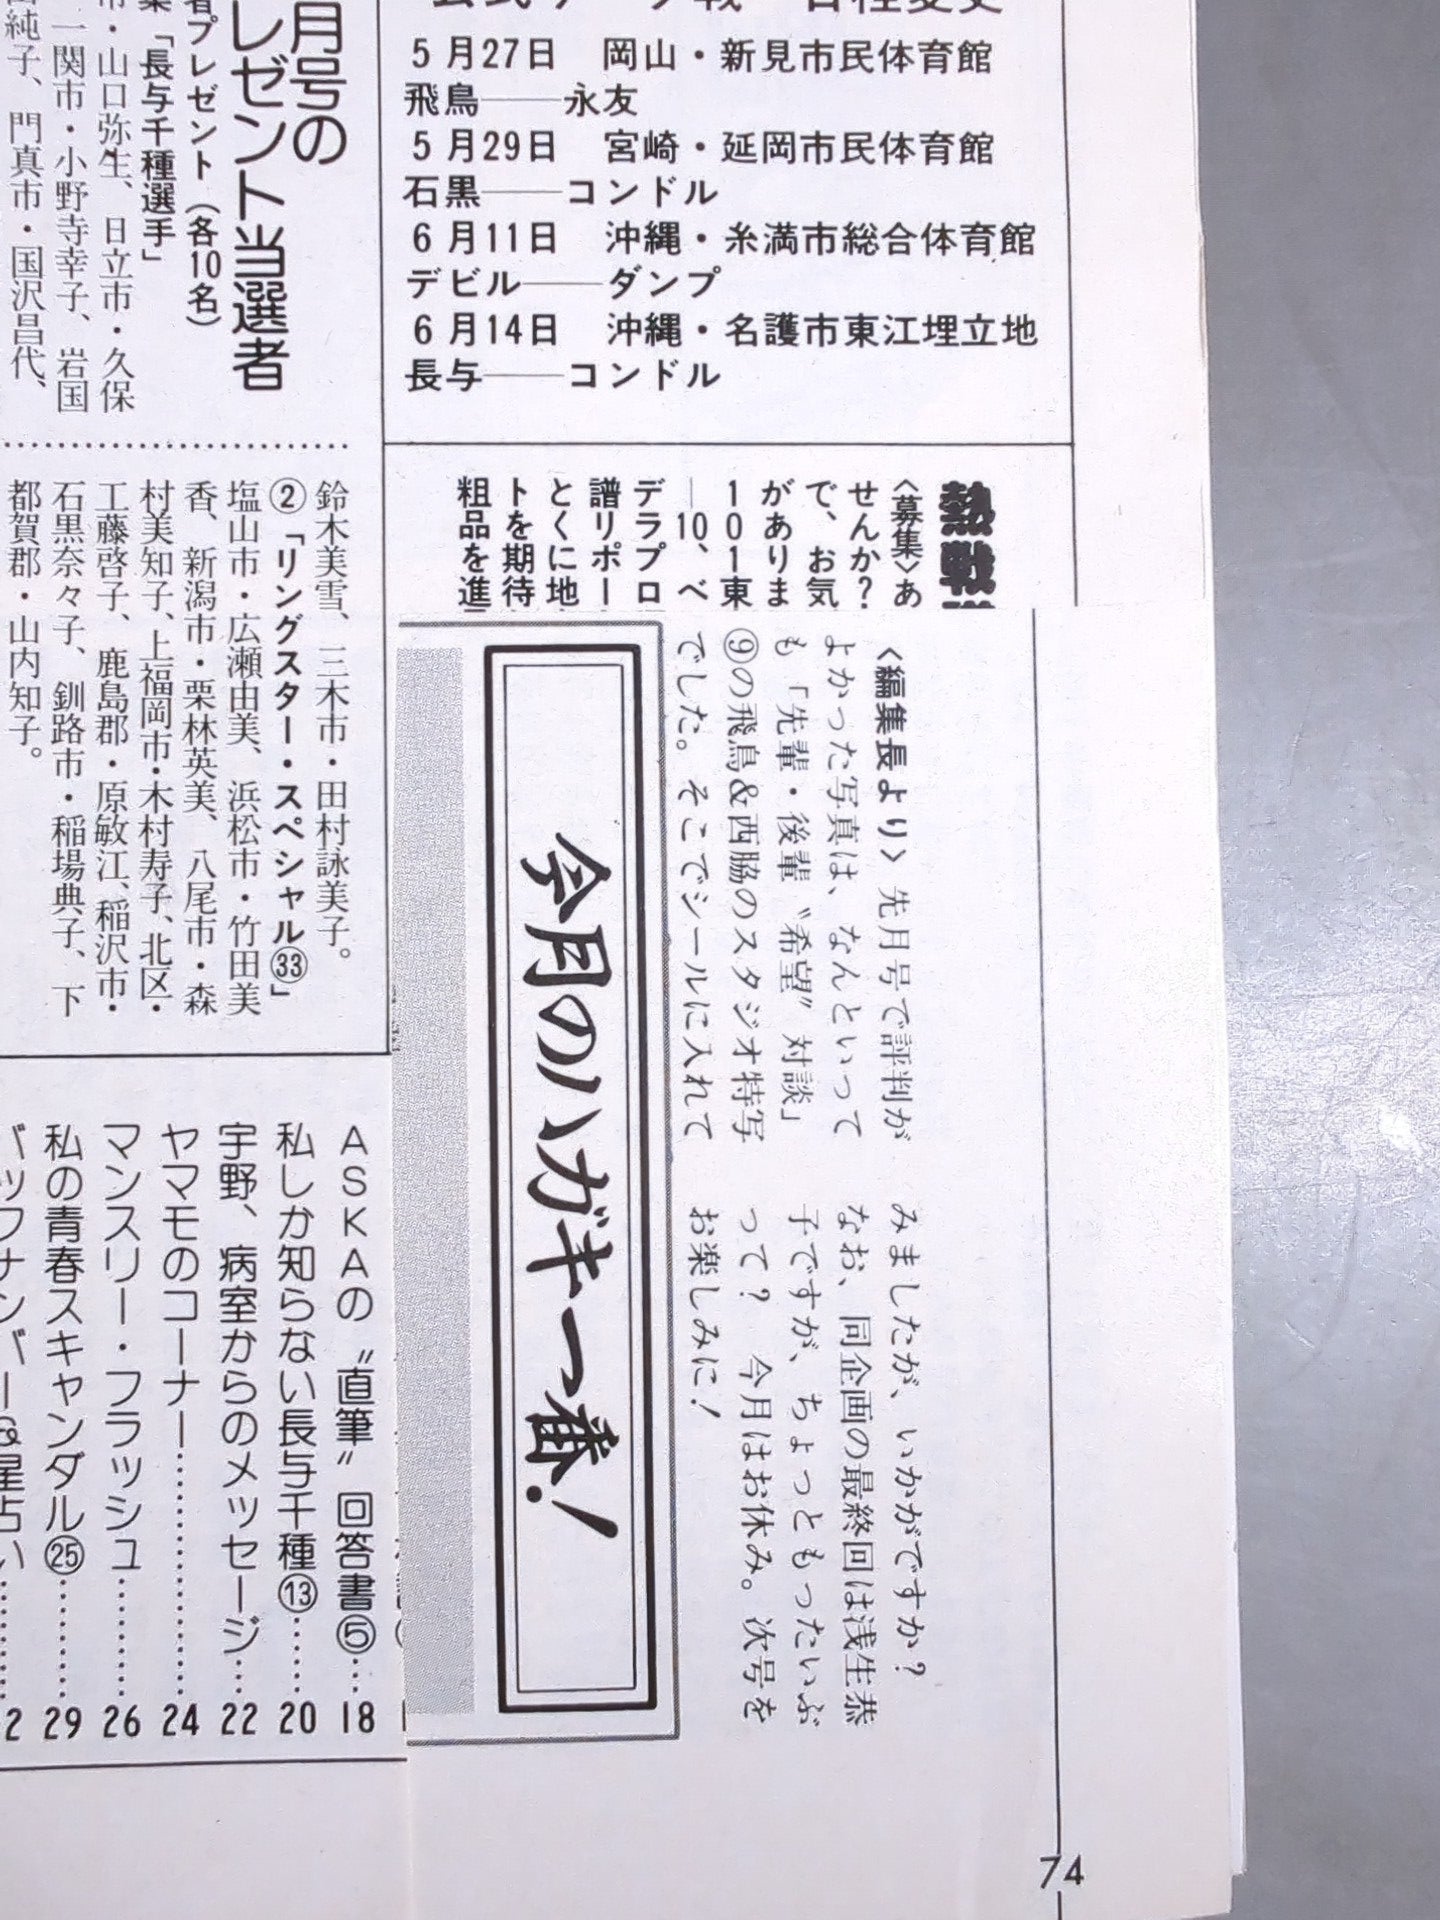 5月27日 岡山・新見市民体育館
飛鳥――永友
5月29日 宮崎・延岡市民体育館
石黒――コンドル
6月11日 沖縄・糸満市総合体育館
デビル――ダンプ
6月14日 沖縄・名護市東江埋立地
長与――コンドル
月号の
レゼント当選者
プレゼント(各10名)
「長与千種選手」
市・山口弥生、日立市・久保
一関市・小野寺幸子、岩国
純子、門真市・国沢昌代、
鈴木美雪、三木市・田村詠美子。
②「リングスター・スペシャル㉝」
塩山市・広瀬由美、浜松市・竹田美
香、新潟市・栗林英美、八尾市・森
村美知子、上福岡市・木村寿子、北区・
工藤啓子、鹿島郡・原敏江、稲沢市・
石黒奈々子、釧路市・稲場典子、下
都賀郡・山内知子。
熱戦
〈募集〉あ
せんか?
で、お気
がありま
101東
―10、ベ
デラプロ
譜リポー
とくに地
トを期待
粗品を進
〈編集長より〉先月号で評判が
よかった写真は、なんといって
も「先輩・後輩〝希望〟対談」
⑨の飛鳥&西脇のスタジオ特写
でした。そこでシールに入れて
みましたが、いかがですか?
なお、同企画の最終回は浅生恭
子ですが、ちょっともったいぶ
って? 今月はお休み。次号を
お楽しみに!
今月のハガキ一番!
ASKAの〝直筆〟回答書⑤…18
私しか知らない長与千種⑬……20
宇野、病室からのメッセージ…22
ヤマモのコーナー…………24
マンスリー・フラッシュ………26
私の青春スキャンダル㉕………29
74